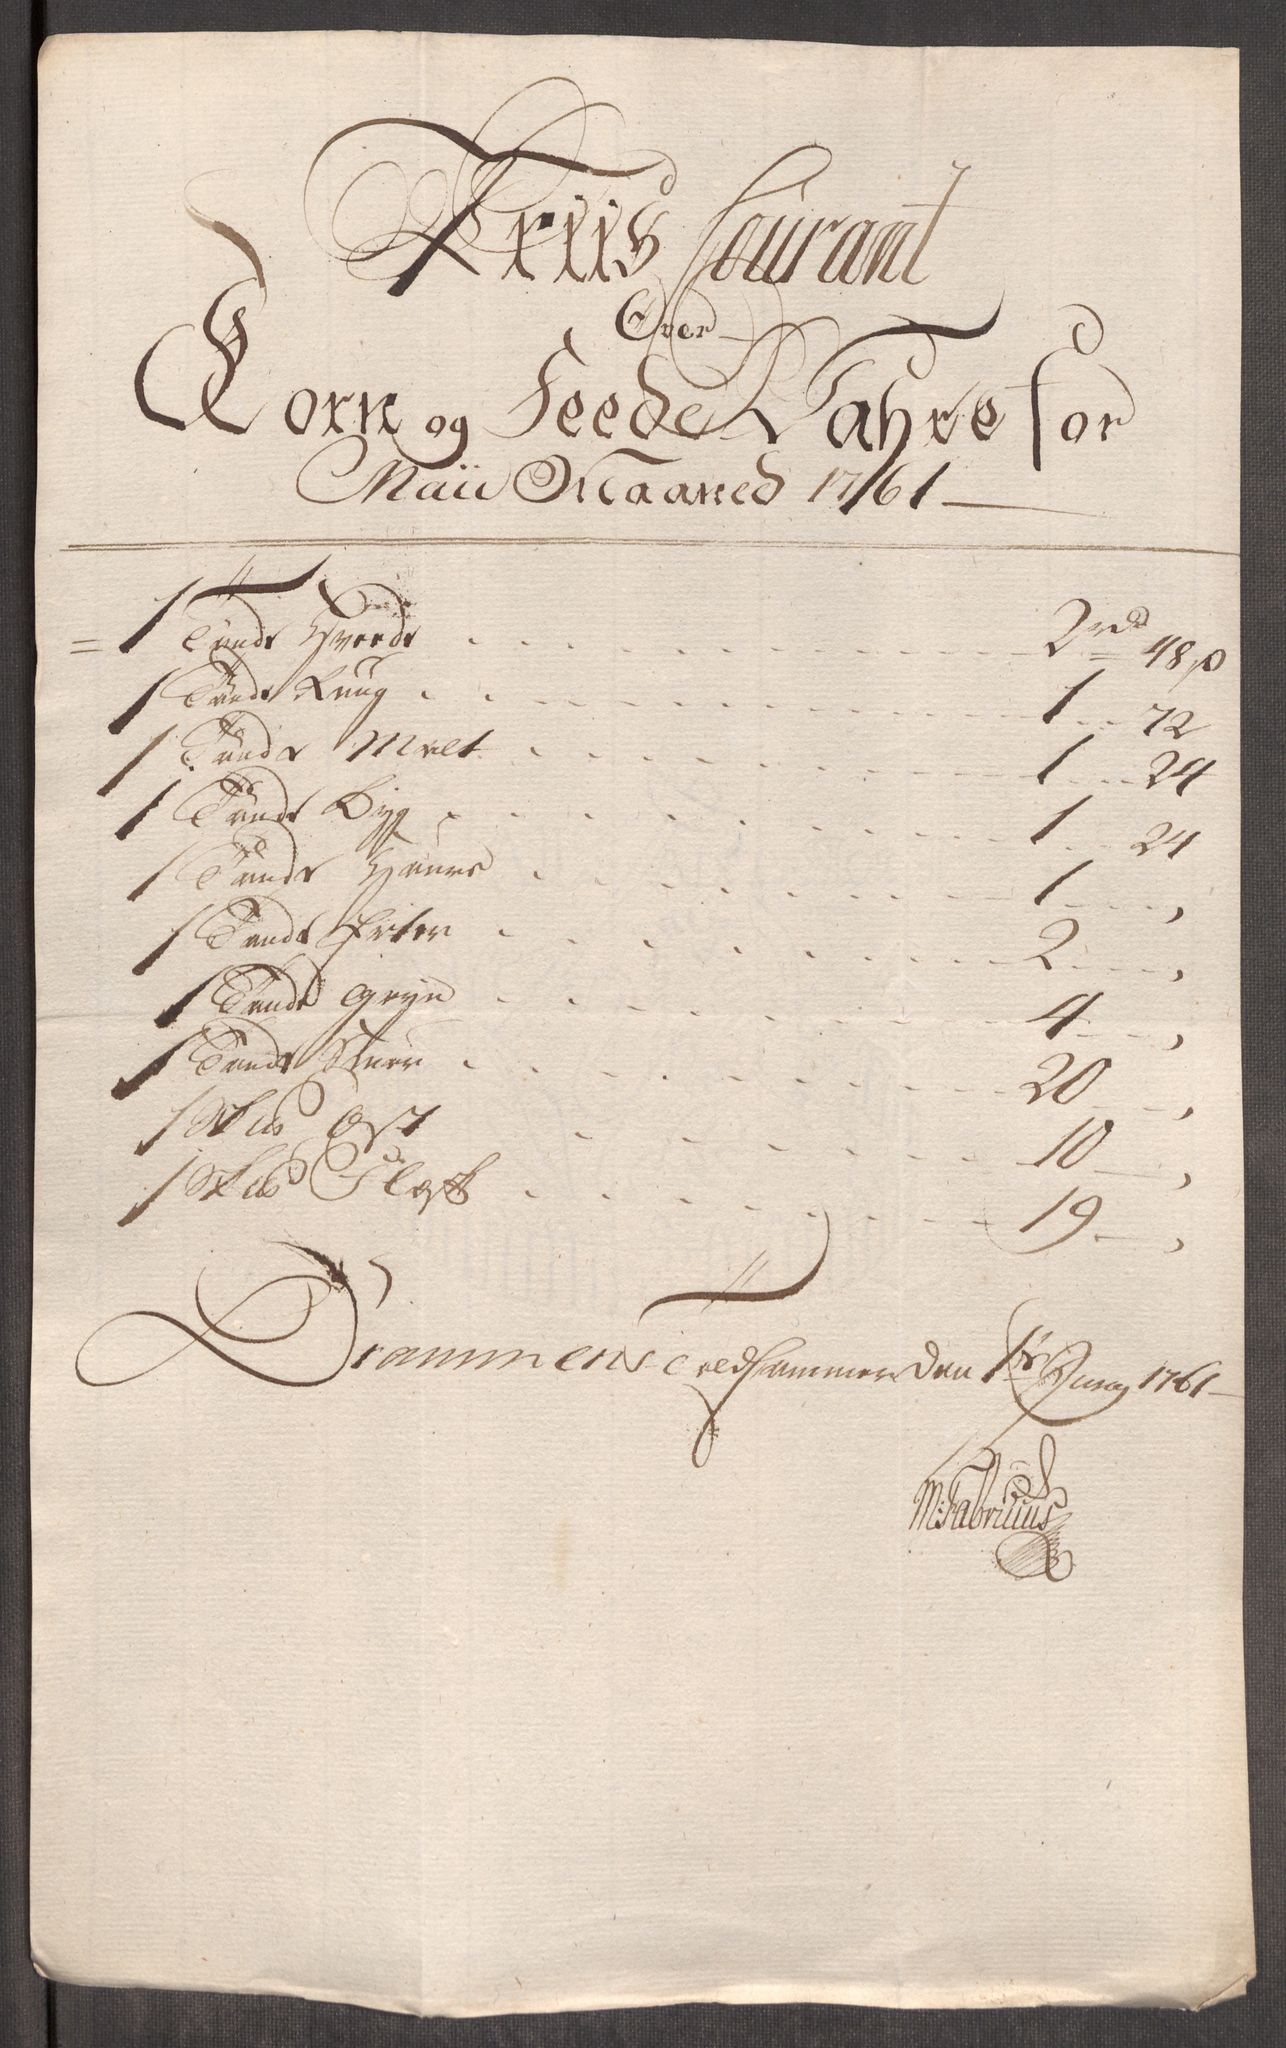 Priis Courant
Over
Korn og Feede Vahre for
Maii Maaned 1761
1 Tønde Hvede . . . 2 rd 48 ß
1 Tønde Rug . . . 1 .. 72
1 Tønde Malt . . . 1 .. 24
1 Tønde Byg . . . 1 .. 24
1 Tønde Haure . . . 1 .. ,
1 Tønde Erter . . . 2 .. ,
1 Tønde Gryn . . . 4 .. ,
1 Tønde Smør . . . 20 .. ,
1 Sk℔ Ost . . . 10 .. ,
1 Sk℔ Flesk . . . 19 .. ,
Drammens Toldkammer den 1st Juny 1761
M: Fabritius